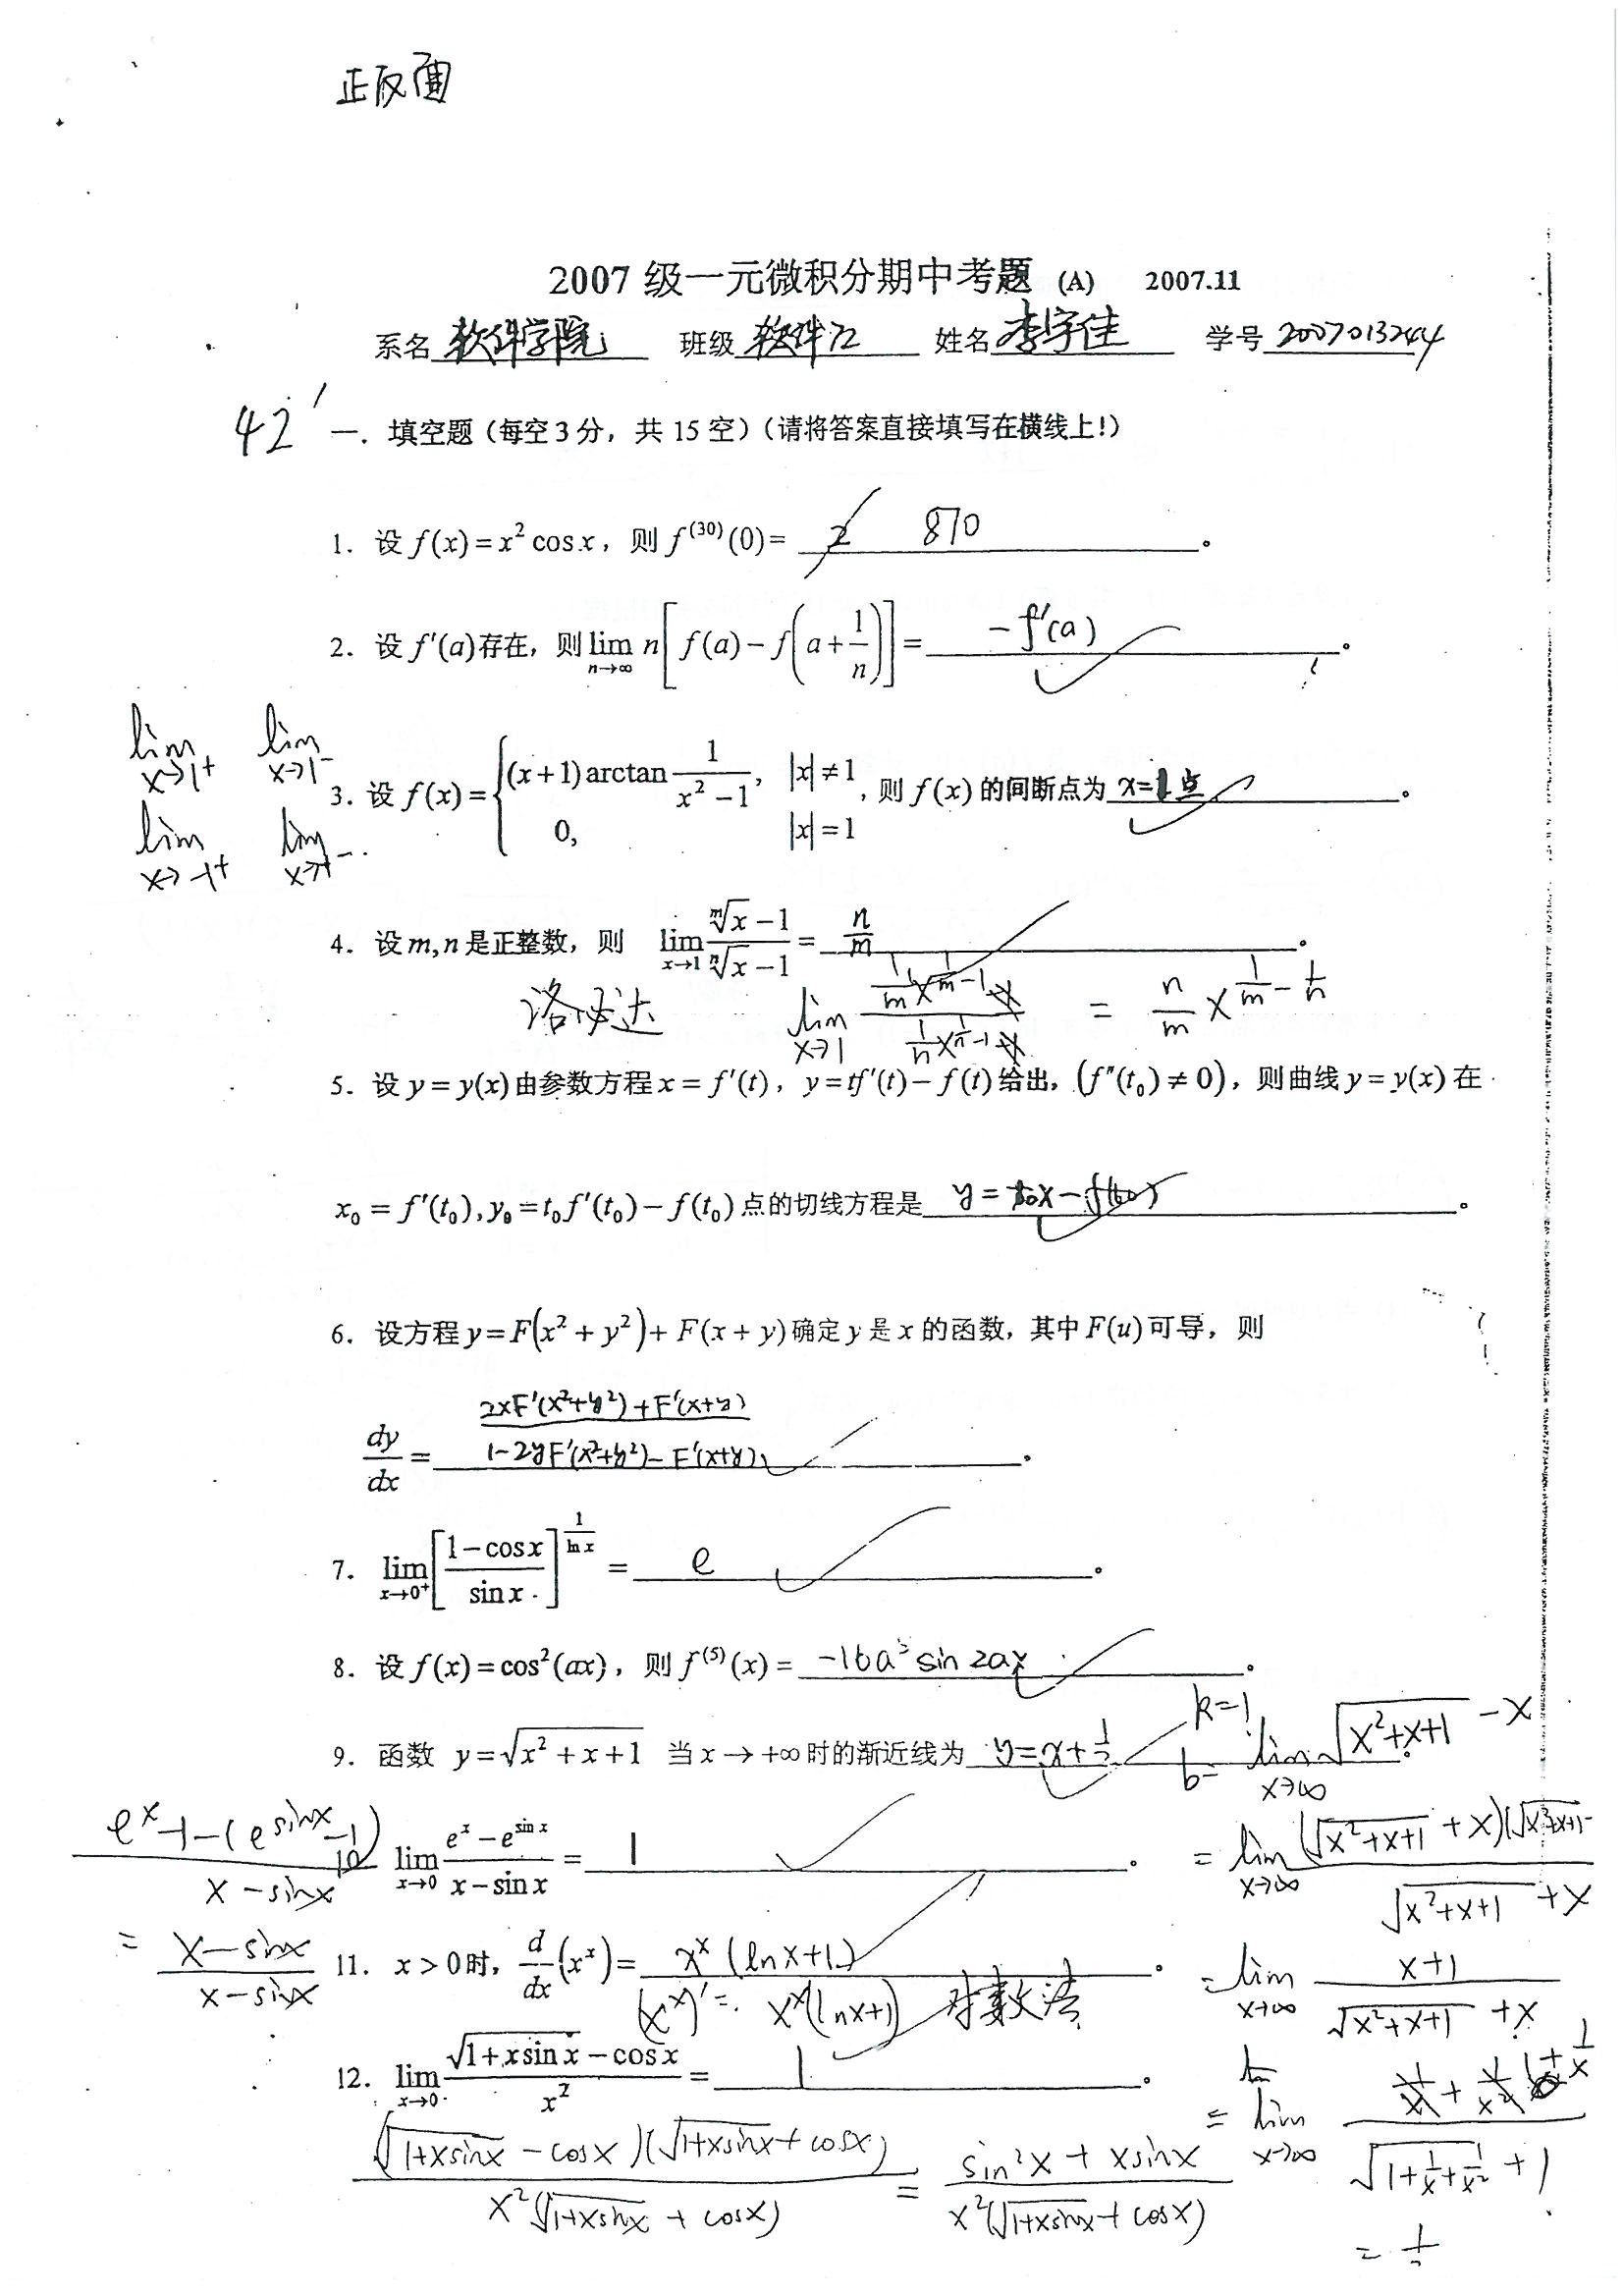 正反面
2007 级一元微积分期中考题 (A) 2007.11
系名 软件学院 班级 软件72 姓名 李宇佳 学号 2007013244
42′ 一. 填空题（每空3分，共 15 空）（请将答案直接填写在横线上!）
1. 设 f(x)=x² cos x，则 f⁽³⁰⁾(0)= 2 870 。
2. 设 f′(a)存在，则 lim_{n→∞} n[f(a)−f(a+1/n)]= −f′(a) 。
lim_{x→1⁺} lim_{x→1⁻}
lim_{x→−1⁺} lim_{x→−1⁻}
3. 设 f(x)={(x+1)arctan 1/(x²−1), |x|≠1
0, |x|=1 ,则 f(x) 的间断点为 x=1点 。
4. 设 m,n 是正整数，则 lim_{x→1} (ᵐ√x −1)/(ⁿ√x −1) = n/m 。
洛必达 lim_{x→1} (1/m x^{1/m −1})/(1/n x^{1/n −1}) = n/m x^{1/m − 1/n}
5. 设 y=y(x) 由参数方程 x=f′(t)，y=tf′(t)−f(t) 给出，(f″(t₀)≠0)，则曲线 y=y(x) 在
x₀=f′(t₀),y₀=t₀f′(t₀)−f(t₀) 点的切线方程是 y=t₀x−f(t₀) 。
6. 设方程 y=F(x²+y²)+F(x+y) 确定 y 是 x 的函数，其中 F(u) 可导，则
dy/dx = (2xF′(x²+y²)+F′(x+y))/(1−2yF′(x²+y²)−F′(x+y)) 。
7. lim_{x→0⁺} [(1−cos x)/sin x]^{1/ln x} = e 。
8. 设 f(x)=cos²(ax)，则 f⁽⁵⁾(x)= −16a⁵ sin 2ax 。
9. 函数 y=√(x²+x+1) 当 x→+∞ 时的渐近线为 y=x+1/2 。
k=1
b= lim_{x→∞} √(x²+x+1) −x
= lim_{x→∞} (√(x²+x+1)+x)(√(x²+x+1)− / √(x²+x+1)+x
= lim_{x→∞} (x+1)/(√(x²+x+1)+x)
= lim_{x→∞} (1+1/x)/(√(1+1/x+1/x²)+1)
= 1/2
(eˣ−1−(e^{sin x}−1))/(x−sin x)
= (x−sin x)/(x−sin x)
10 lim_{x→0} (eˣ−e^{sin x})/(x−sin x) = 1 。
11. x>0时，d/dx (xˣ)= xˣ(ln x+1) 。
(xˣ)′= xˣ(ln x+1) 对数法
12. lim_{x→0} (√(1+x sin x)−cos x)/x² = 1 。
(√(1+x sin x)−cos x)(√(1+x sin x)+cos x)/(x²(√(1+x sin x)+cos x)) = (sin²x+x sin x)/(x²(√(1+x sin x)+cos x))